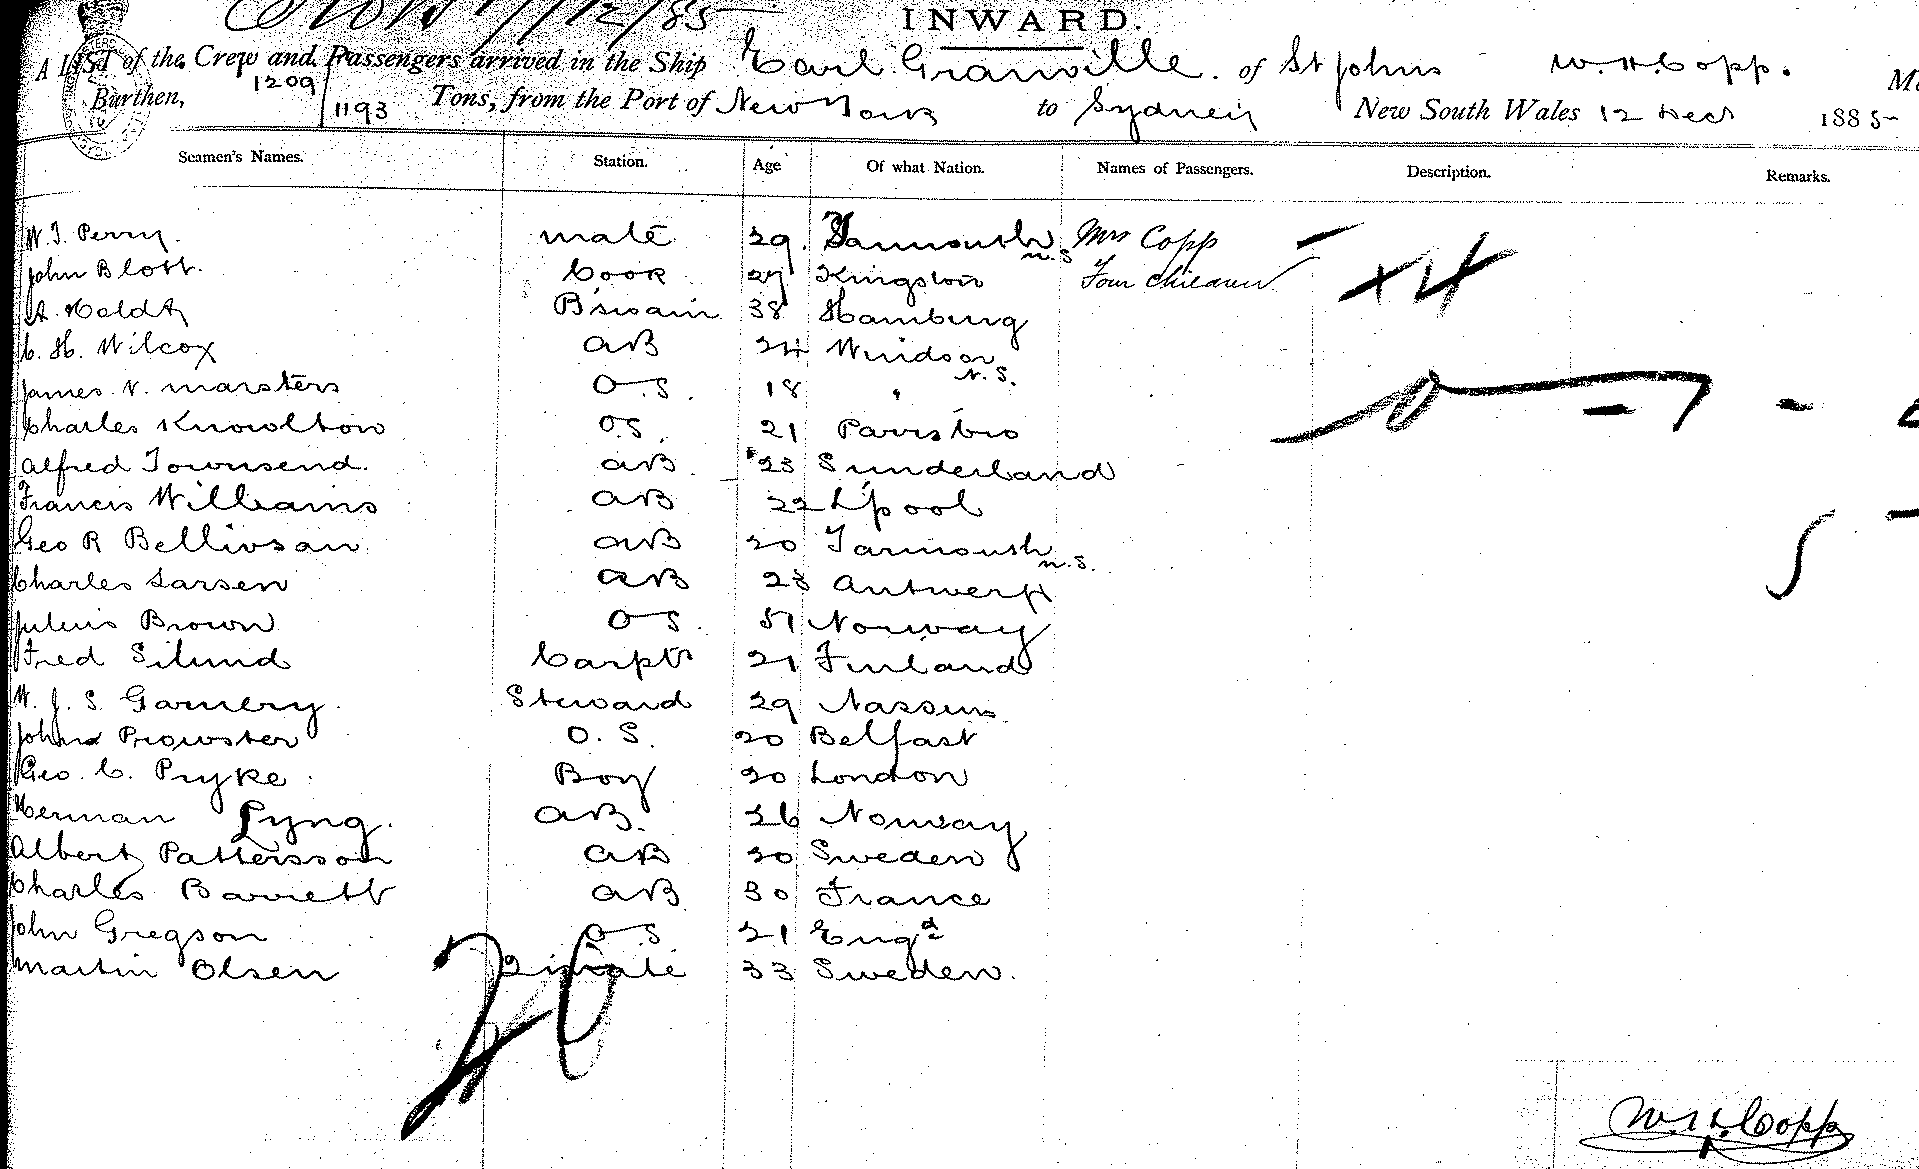 1/12/85
INWARD.
A LIST of the Crew and Passengers arrived in the Ship Earl Granville of St Johns W. H. Copp.
Burthen, 1209/1193 Tons, from the Port of New York to Sydney New South Wales 12 Decr 1885
Seamen's Names. Station. Age Of what Nation. Names of Passengers. Description. Remarks.
W. J. Perry. mate 29. Yarmouth N.S Mrs Copp
John Blott. Cook 27 Kingston Four Children
A. Holdt B'swain 38 Hamburg
C. H. Wilcox AB 24 Windsor N.S.
James N. Marsters O.S. 18 "
Charles Knowlton O.S. 21 Parrsbro
Alfred Townsend. AB 23 Sunderland
Francis Williams AB 22 L'pool
Geo R AB 20 Yarmouth N.S.
Charles Larsen AB 23 Antwerp
Julius Brown O.S. Norway
Fred Silund Carptr 21 Finland
W. J. S. Steward 29 Nassau
John Prowster O. S. 20 Belfast
Geo. C. Pryke Boy 20 London
Herman Lyng. AB. 26 Norway
Albert Pattersson AB 20 Sweden
Charles Barrett AB 30 France
John Gregson O S 21 Engd
Martin Olsen 2 mate 33 Sweden.
20
W. H. Copp